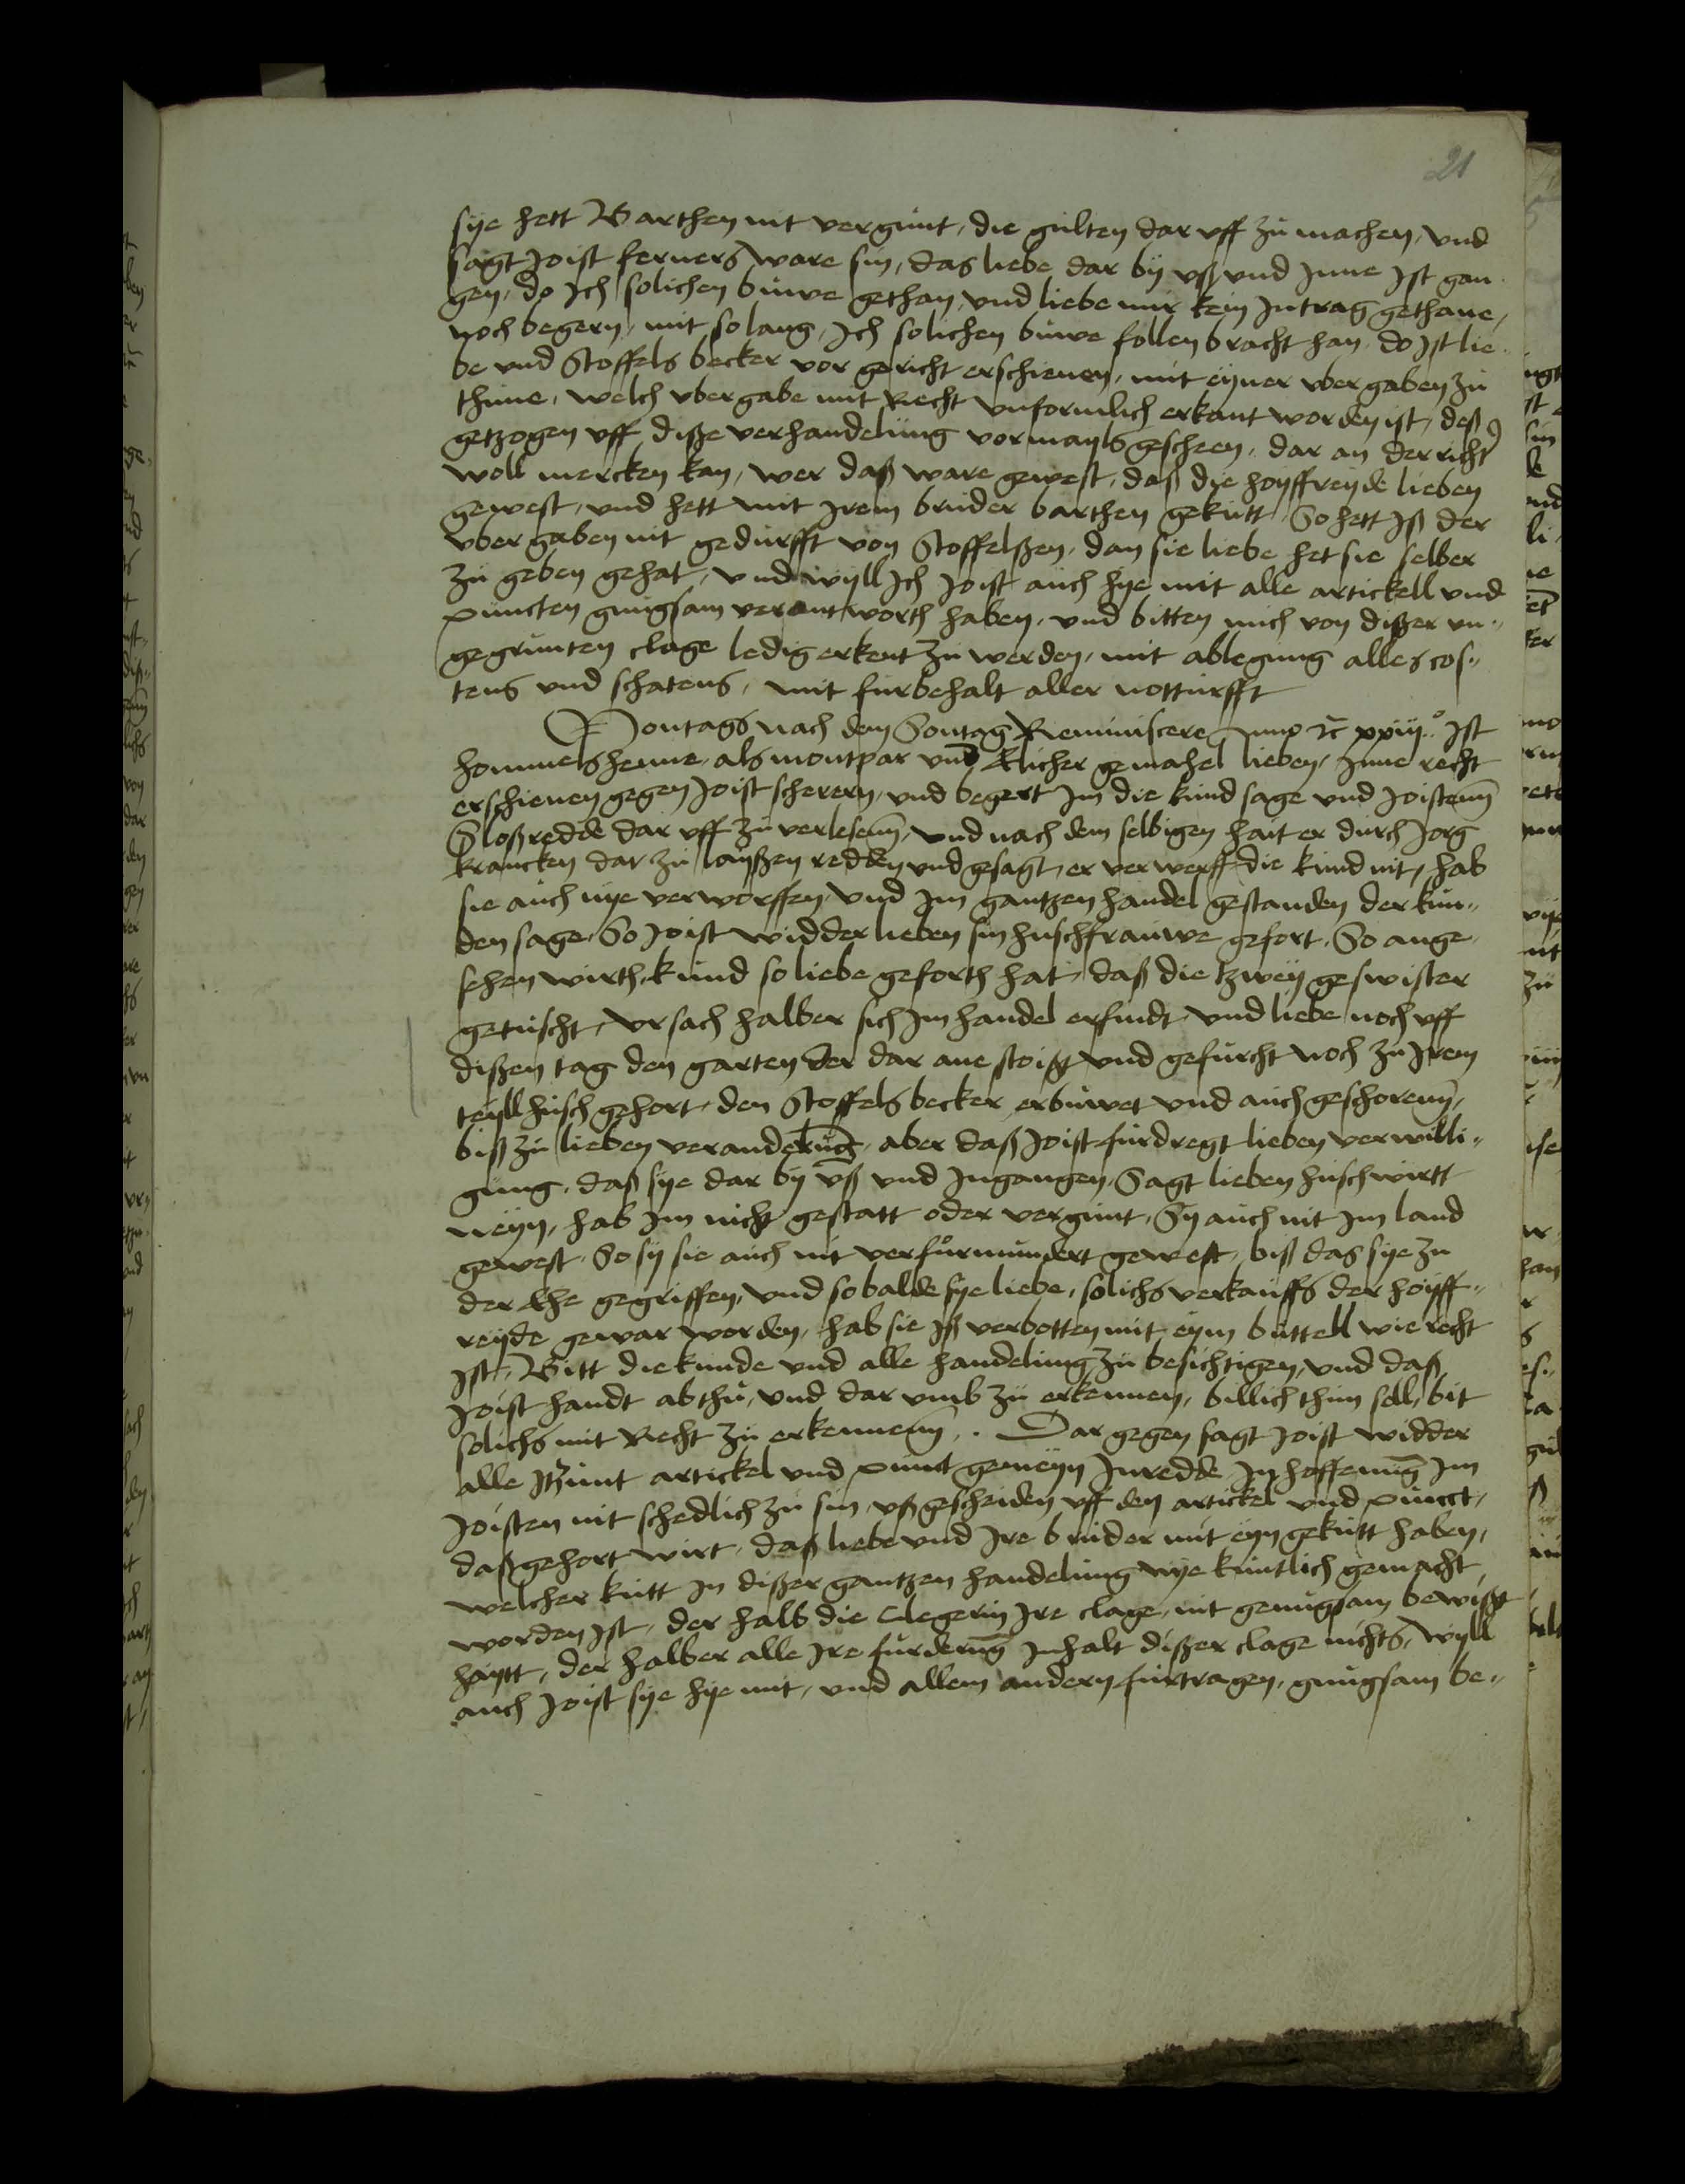 21
sye hett Barthen nit vergünt, die gülten dar vff zü machen, vnd
sagt Joist ferners ware sin, das liebe dar by vß vnd Inne Ist gan
gen, do Ich solichen büwe gethan, vnd liebe mir kein Intrag gethane,
noch begern, mit so lang, Ich solichen büwe follenbracht han, do Ist lie
be vnd Stoffels becker vor gericht erschienen, mit eyner vbergaben zü
thüne, welch vbergabe mit Recht vnformlich erkant worden ist, deß
getzogen vff disse verhandelüng vormayls gescheen, dar an der richter
woll mercken kan, wer daß ware gewest, daß die hoyffreyde lieben
gewest, vnd hett mit Irem brüder barthen gekütt, So hett Iß der
vbergaben nit gedürfft von Stoffelßen, dan sie liebe het sie selber
zü geben gehat, vnd wyll Ich Joist aüch hye mit alle artickell vnd
püncten gnügsam verantworth haben, vnd bitten mich von dißer vn„
gegrünten clage ledig erkent zü werden, mit ablegüng alles cos„
tens vnd schatens, mit fürbehalt aller nottürfft
Montags nach dem Sontag Reminiscere Anno rc xxiij° Ist
hommelshenne, als montpar vnd Elicher gemahel lieben, Inne recht
erschienen gegen Joist scherern, vnd begert Im die kündsage vnd Joistenn
Sloßredde dar vff zü verlesenn, vnd nach dem selbigen hait er dürch Jorg
krancken dar zü laüßen redden vnd gesagt, er verwerff die künd nit, hab
sie aüch nye verworffen, vnd Im gantzen handel gestanden der kün„
den sage, So Joist widder lieben sin hüschfraüwe gefort, So ange
sehen wirth, künd so liebe geforth hat, daß die tzwey geswister
getüscht, vrsach halber sich Im handel erfindt, vnd liebe noch vff
dißen tag den garten der dar ane stoißt vnd gefürcht noch zü Irem
teyll hüsch gehort, den Stoffels becker erbüwet vnd aüch geschorenn,
biß zü lieben veranderüng, aber daß Joist fürdregt lieben verwilli„
güng, daß sye dar by vß vnd Ingangen, Sagt lieben hüschwirtt
neyn, hab Im nicht gestatt oder vergünt, Sy aüch nit Im land
gewest, So sy sie aüch nit verfürmündert gewest, biß das sye zü
der Ehe gegriffen, vnd so balde sye liebe, solichs verkaüffs der hoyff„
reyde gewar worden, hab sie Iß verbotten mit eym büttell wie recht
Ist, Bitt die künde vnd alle handelüng zü besichtigen, vnd daß
Joist handt ab thü, vnd dar vmb zü erkennen, billich thün soll, bit
solichs mit Recht zü erkennenn. Dar gegen sagt Joist widder
alle Itzünt artickel vnd pünct gemeyn Inredde In hoffenüng Im
Joisten nit schedlich zü sin, vßgescheiden vff den artickel vnd püncct,
daß gehort wirt, daß liebe vnd Ire brüder mit eyn gekütt haben,
welcher kütt In dißer gantzen handelüng nye küntlich gemacht
worden Ist, der halb die clegerin Ire clage, nit genügsam bewißt
haytt, der halber alle Ire fürderüng Inhalt dißer clage nichts, wyll
aüch Joist sye hye mit, vnd allem andern fürtragen, gnügsam be„